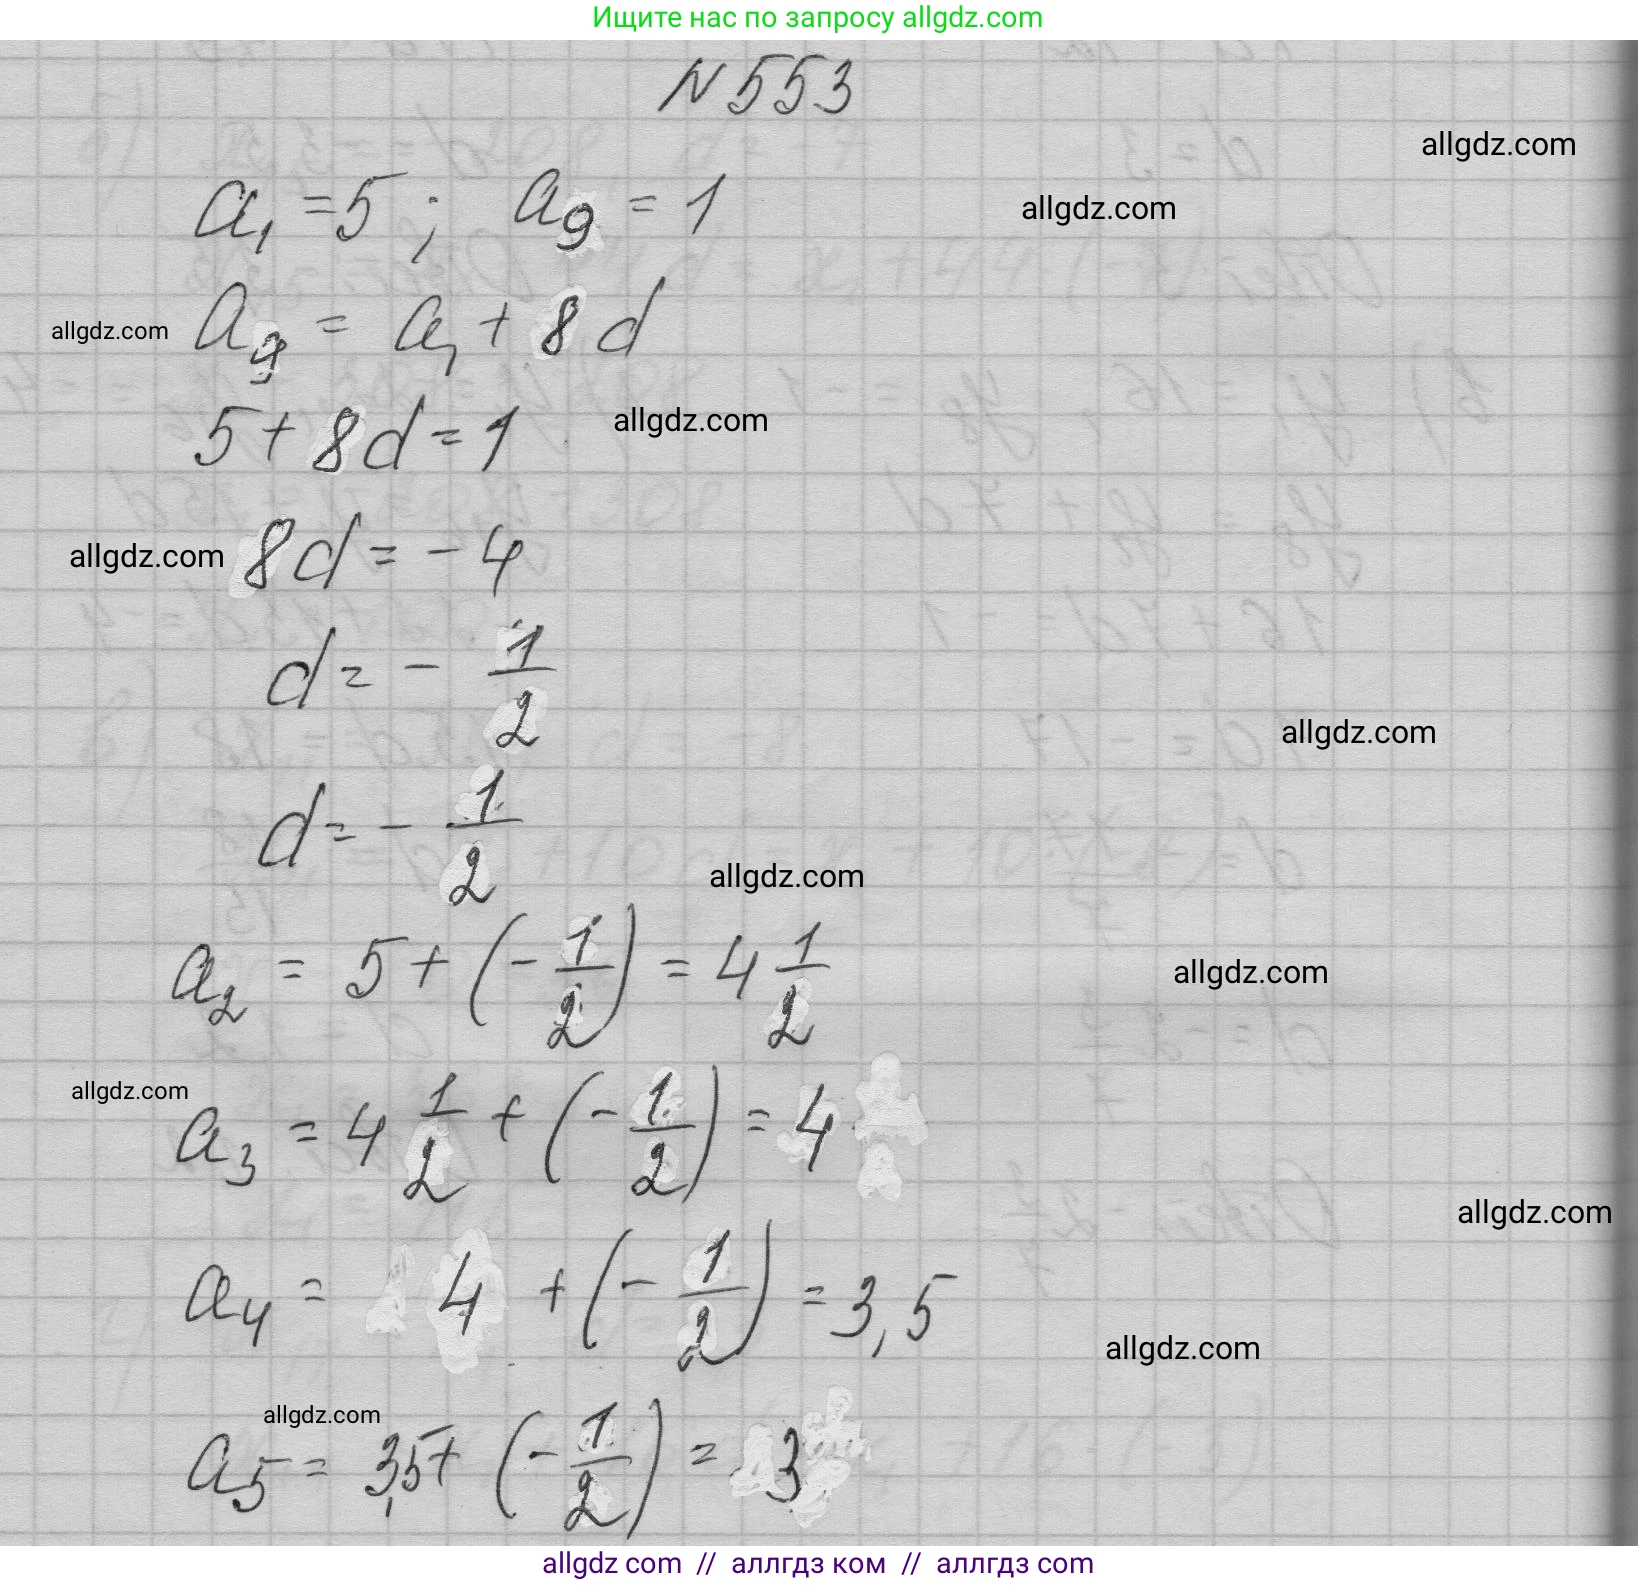 Ищите нас по запросу allgdz.com
N553
allgdz.com
a₁ = 5 ; a₉ = 1
allgdz.com
allgdz.com
a₉ = a₁ + 8d
5 + 8d = 1
allgdz.com
allgdz.com
8d = - 4
d = - 1/2
allgdz.com
d = - 1/2
allgdz.com
a₂ = 5 + (- 1/2) = 4 1/2
allgdz.com
allgdz.com
a₃ = 4 1/2 + (- 1/2) = 4
allgdz.com
a₄ = 4 + (- 1/2) = 3,5
allgdz.com
allgdz.com
a₅ = 3,5 + (- 1/2) = 3
allgdz com // аллгдз ком // аллгдз com